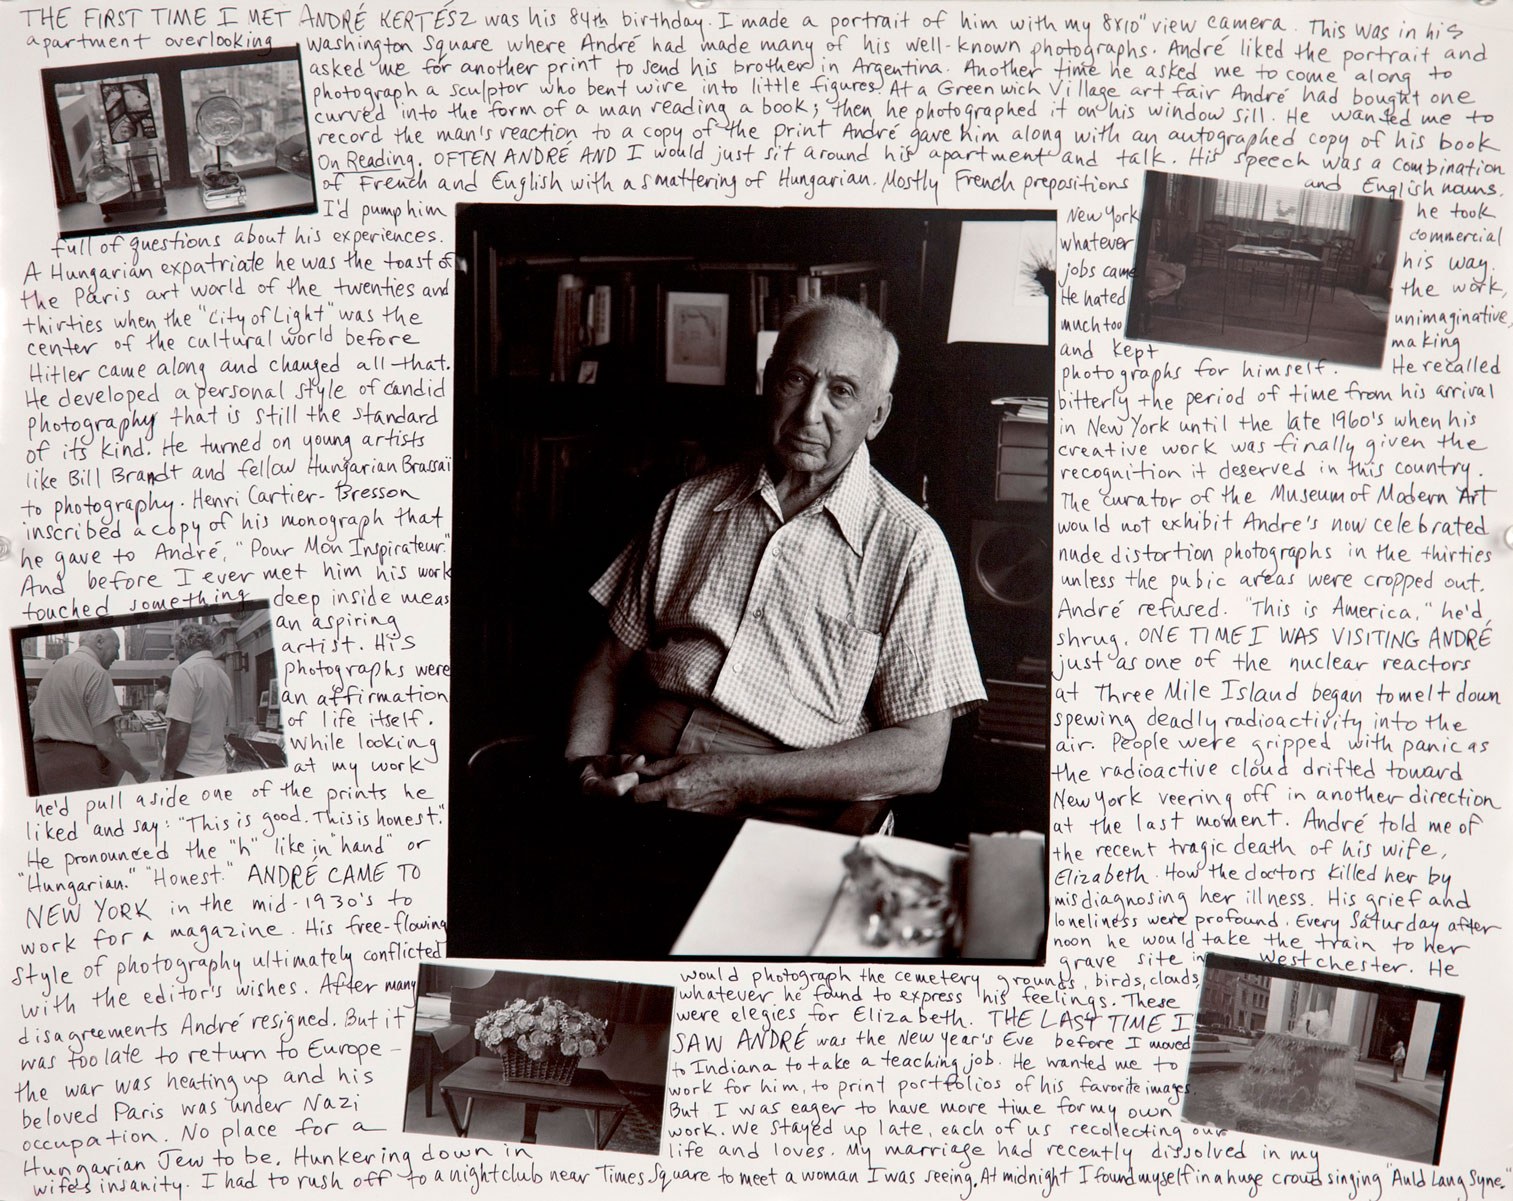 THE FIRST TIME I MET ANDRÉ KERTÉSZ was his 84th birthday. I made a portrait of him with my 8x10" view camera. This was in his
apartment overlooking Washington Square where André had made many of his well-known photographs. André liked the portrait and
asked me for another print to send his brother in Argentina. Another time he asked me to come along to
photograph a sculptor who bent wire into little figures. At a Greenwich Village art fair André had bought one
curved into the form of a man reading a book; then he photographed it on his window sill. He wanted me to
record the man's reaction to a copy of the print André gave him along with an autographed copy of his book
On Reading. OFTEN ANDRÉ AND I would just sit around his apartment and talk. His speech was a combination
of French and English with a smattering of Hungarian. Mostly French prepositions and English nouns.
I'd pump him
full of questions about his experiences.
A Hungarian expatriate he was the toast of
the Paris art world of the twenties and
thirties when the "City of Light" was the
center of the cultural world before
Hitler came along and changed all that.
He developed a personal style of candid
photography that is still the standard
of its kind. He turned on young artists
like Bill Brandt and fellow Hungarian Brassaï
to photography. Henri Cartier-Bresson
inscribed a copy of his monograph that
he gave to André, "Pour Mon Inspirateur."
And before I ever met him his work
touched something deep inside me as
an aspiring
artist. His
photographs were
an affirmation
of life itself.
While looking
at my work
he'd pull aside one of the prints he
liked and say: "This is good. This is honest."
He pronounced the "h" like in "hand" or
"Hungarian." "Honest." ANDRÉ CAME TO
NEW YORK in the mid-1930's to
work for a magazine. His free-flowing
style of photography ultimately conflicted
with the editor's wishes. After many
disagreements André resigned. But it
was too late to return to Europe –
the war was heating up and his
beloved Paris was under Nazi
occupation. No place for a
Hungarian Jew to be. Hunkering down in
New York he took
whatever commercial
jobs came his way.
He hated the work,
much too unimaginative,
and kept making
photographs for himself. He recalled
bitterly the period of time from his arrival
in New York until the late 1960's when his
creative work was finally given the
recognition it deserved in this country.
The curator of the Museum of Modern Art
would not exhibit Andre's now celebrated
nude distortion photographs in the thirties
unless the pubic areas were cropped out.
André refused. "This is America," he'd
shrug. ONE TIME I WAS VISITING ANDRÉ
just as one of the nuclear reactors
at Three Mile Island began to melt down
spewing deadly radioactivity into the
air. People were gripped with panic as
the radioactive cloud drifted toward
New York veering off in another direction
at the last moment. André told me of
the recent tragic death of his wife,
Elizabeth. How the doctors killed her by
misdiagnosing her illness. His grief and
loneliness were profound. Every Saturday after
noon he would take the train to her
grave site in Westchester. He
would photograph the cemetery grounds, birds, clouds,
whatever he found to express his feelings. These
were elegies for Elizabeth. THE LAST TIME I
SAW ANDRÉ was the New Year's Eve before I moved
to Indiana to take a teaching job. He wanted me to
work for him, to print portfolios of his favorite images.
But I was eager to have more time for my own
work. We stayed up late, each of us recollecting our
life and loves. My marriage had recently dissolved in my
wife's insanity. I had to rush off to a nightclub near Times Square to meet a woman I was seeing. At midnight I found myself in a huge crowd singing "Auld Lang Syne."